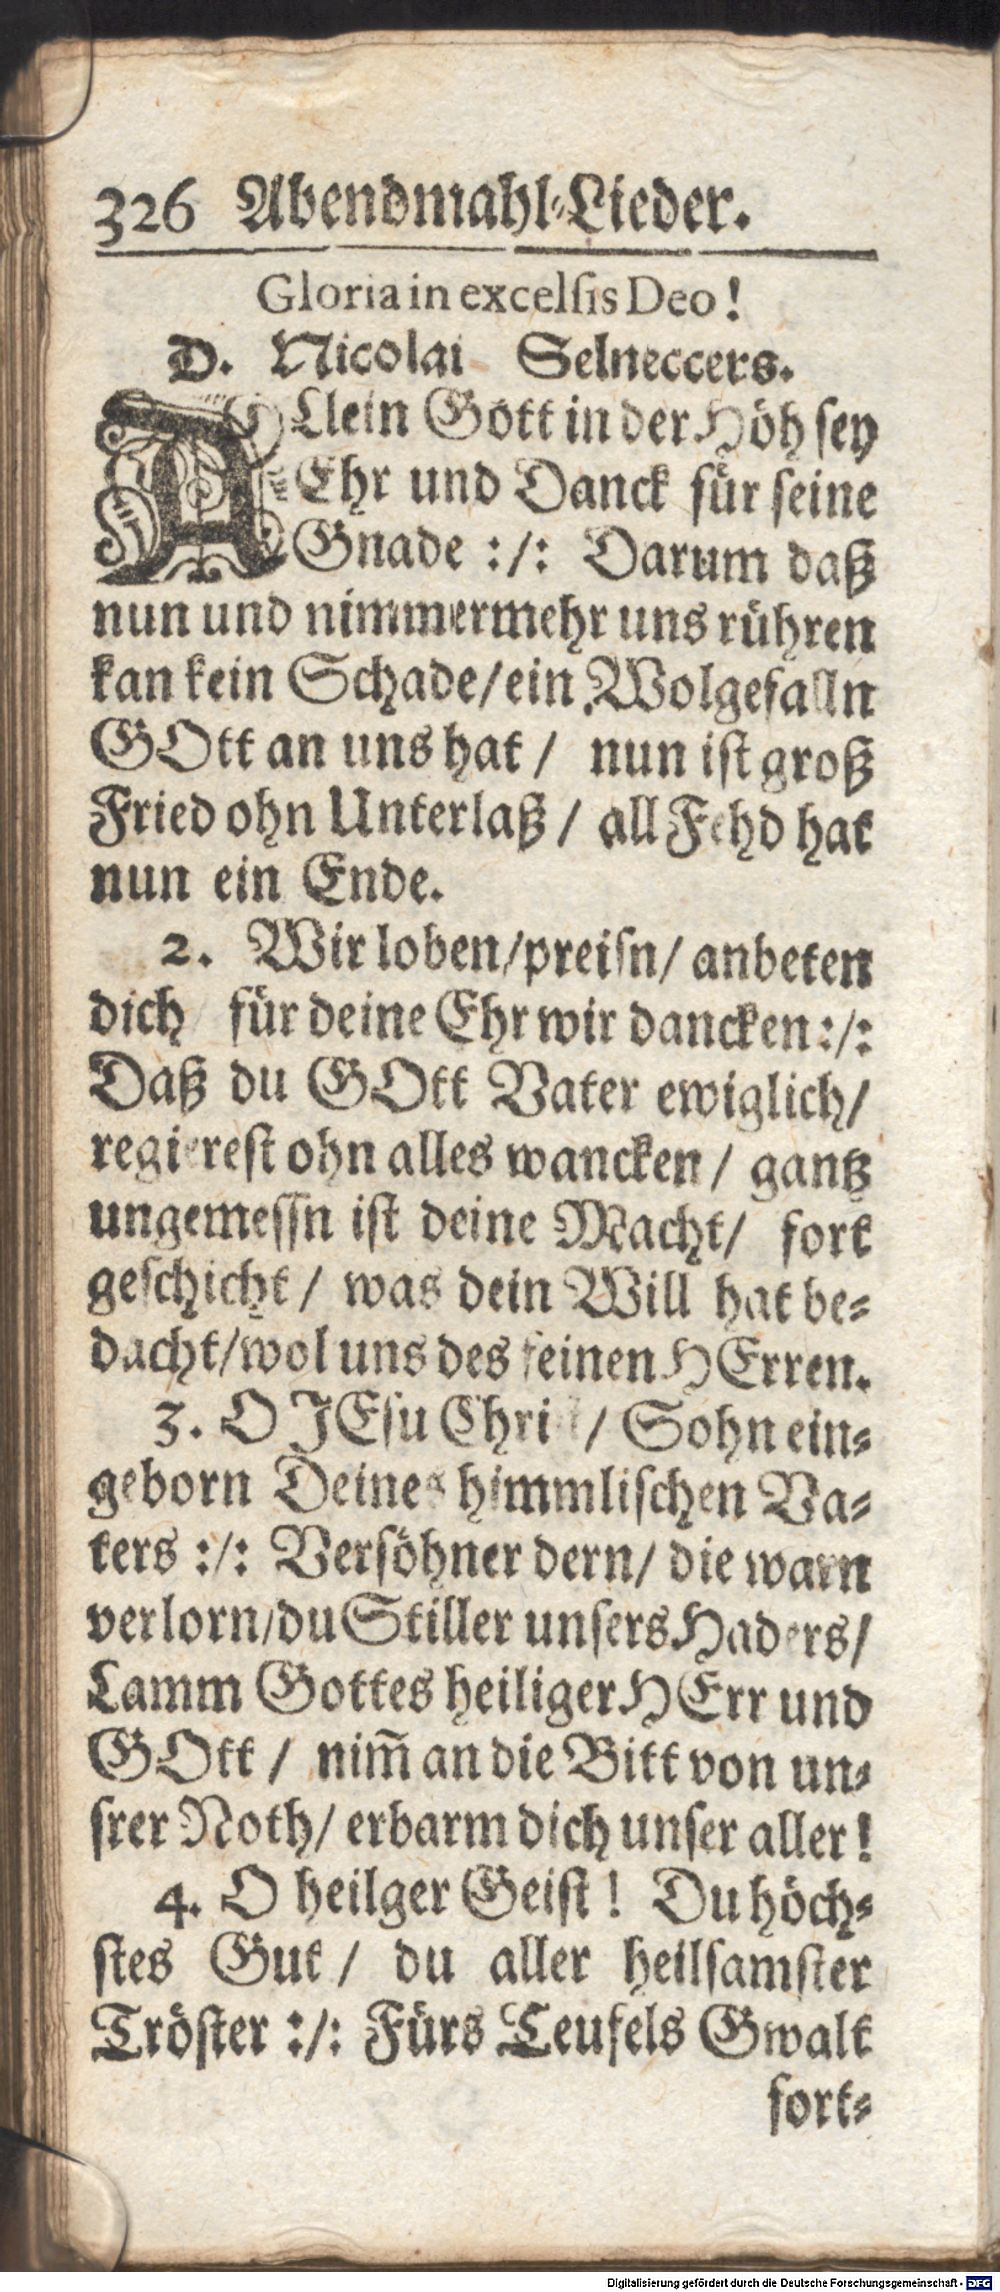 326 Abendmahl-Lieder.
Gloria in excelsis Deo!
D. Nicolai Selneccers.
ALlein Gott in der Höh sey
Ehr und Danck für seine
Gnade :/: Darum daß
nun und nimmermehr uns rühren
kan kein Schade/ ein Wolgefalln
GOtt an uns hat / nun ist groß
Fried ohn Unterlaß / all Fehd hat
nun ein Ende.
2. Wir loben/ preisn/ anbeten
dich/ für deine Ehr wir dancken :/:
Daß du GOtt Vater ewiglich/
regierest ohn alles wancken / gantz
ungemessn ist deine Macht/ fort
geschicht / was dein Will hat be-
dacht/ wol uns des feinen HErren.
3. O JEsu Christ / Sohn ein-
geborn Deines himmlischen Va-
ters :/: Versöhner dern/ die warn
verlorn/ du Stiller unsers Haders/
Lamm Gottes heiliger HErr und
GOtt / nim̃ an die Bitt von un-
srer Noth/ erbarm dich unser aller!
4. O heilger Geist! Du höch-
stes Gut / du aller heilsamster
Tröster :/: Fürs Teufels Gwalt
fort-
Digitalisierung gefördert durch die Deutsche Forschungsgemeinschaft - DFG